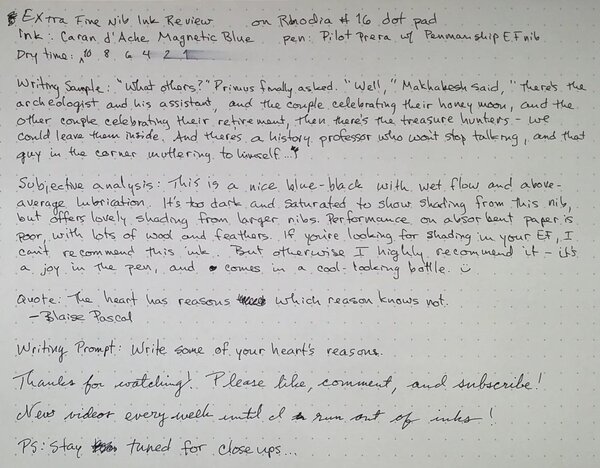 Extra Fine Nib Ink Review on Rhodia #16 dot pad
Ink: Caran d'Ache Magnetic Blue pen: Pilot Prera w/ Penmanship EF nib
Dry time: 10 8 6 4 2 1
Writing Sample: "What others?" Primus finally asked. "Well," Makhabesh said, "There's the
archeologist and his assistant, and the couple celebrating their honeymoon, and the
other couple celebrating their retirement, Then there's the treasure hunters – we
could leave them inside. And theres a history professor who won't stop talking, and that
guy in the corner muttering to himself..."
Subjective analysis: This is a nice blue-black with wet flow and above-
average lubrication. It's too dark and saturated to show shading from this nib,
but offers lovely shading from larger nibs. Performance on absorbent paper is
poor, with lots of wool and feathers. If you're looking for shading in your EF, I
can't recommend this ink. But otherwise I highly recommend it – it's
a joy in the pen, and comes in a cool-looking bottle. ☺
Quote: The heart has reasons which reason knows not.
– Blaise Pascal
Writing Prompt: Write some of your heart's reasons.
Thanks for watching! Please like, comment, and subscribe!
New videos every week until I run out of inks!
PS: Stay tuned for close ups...